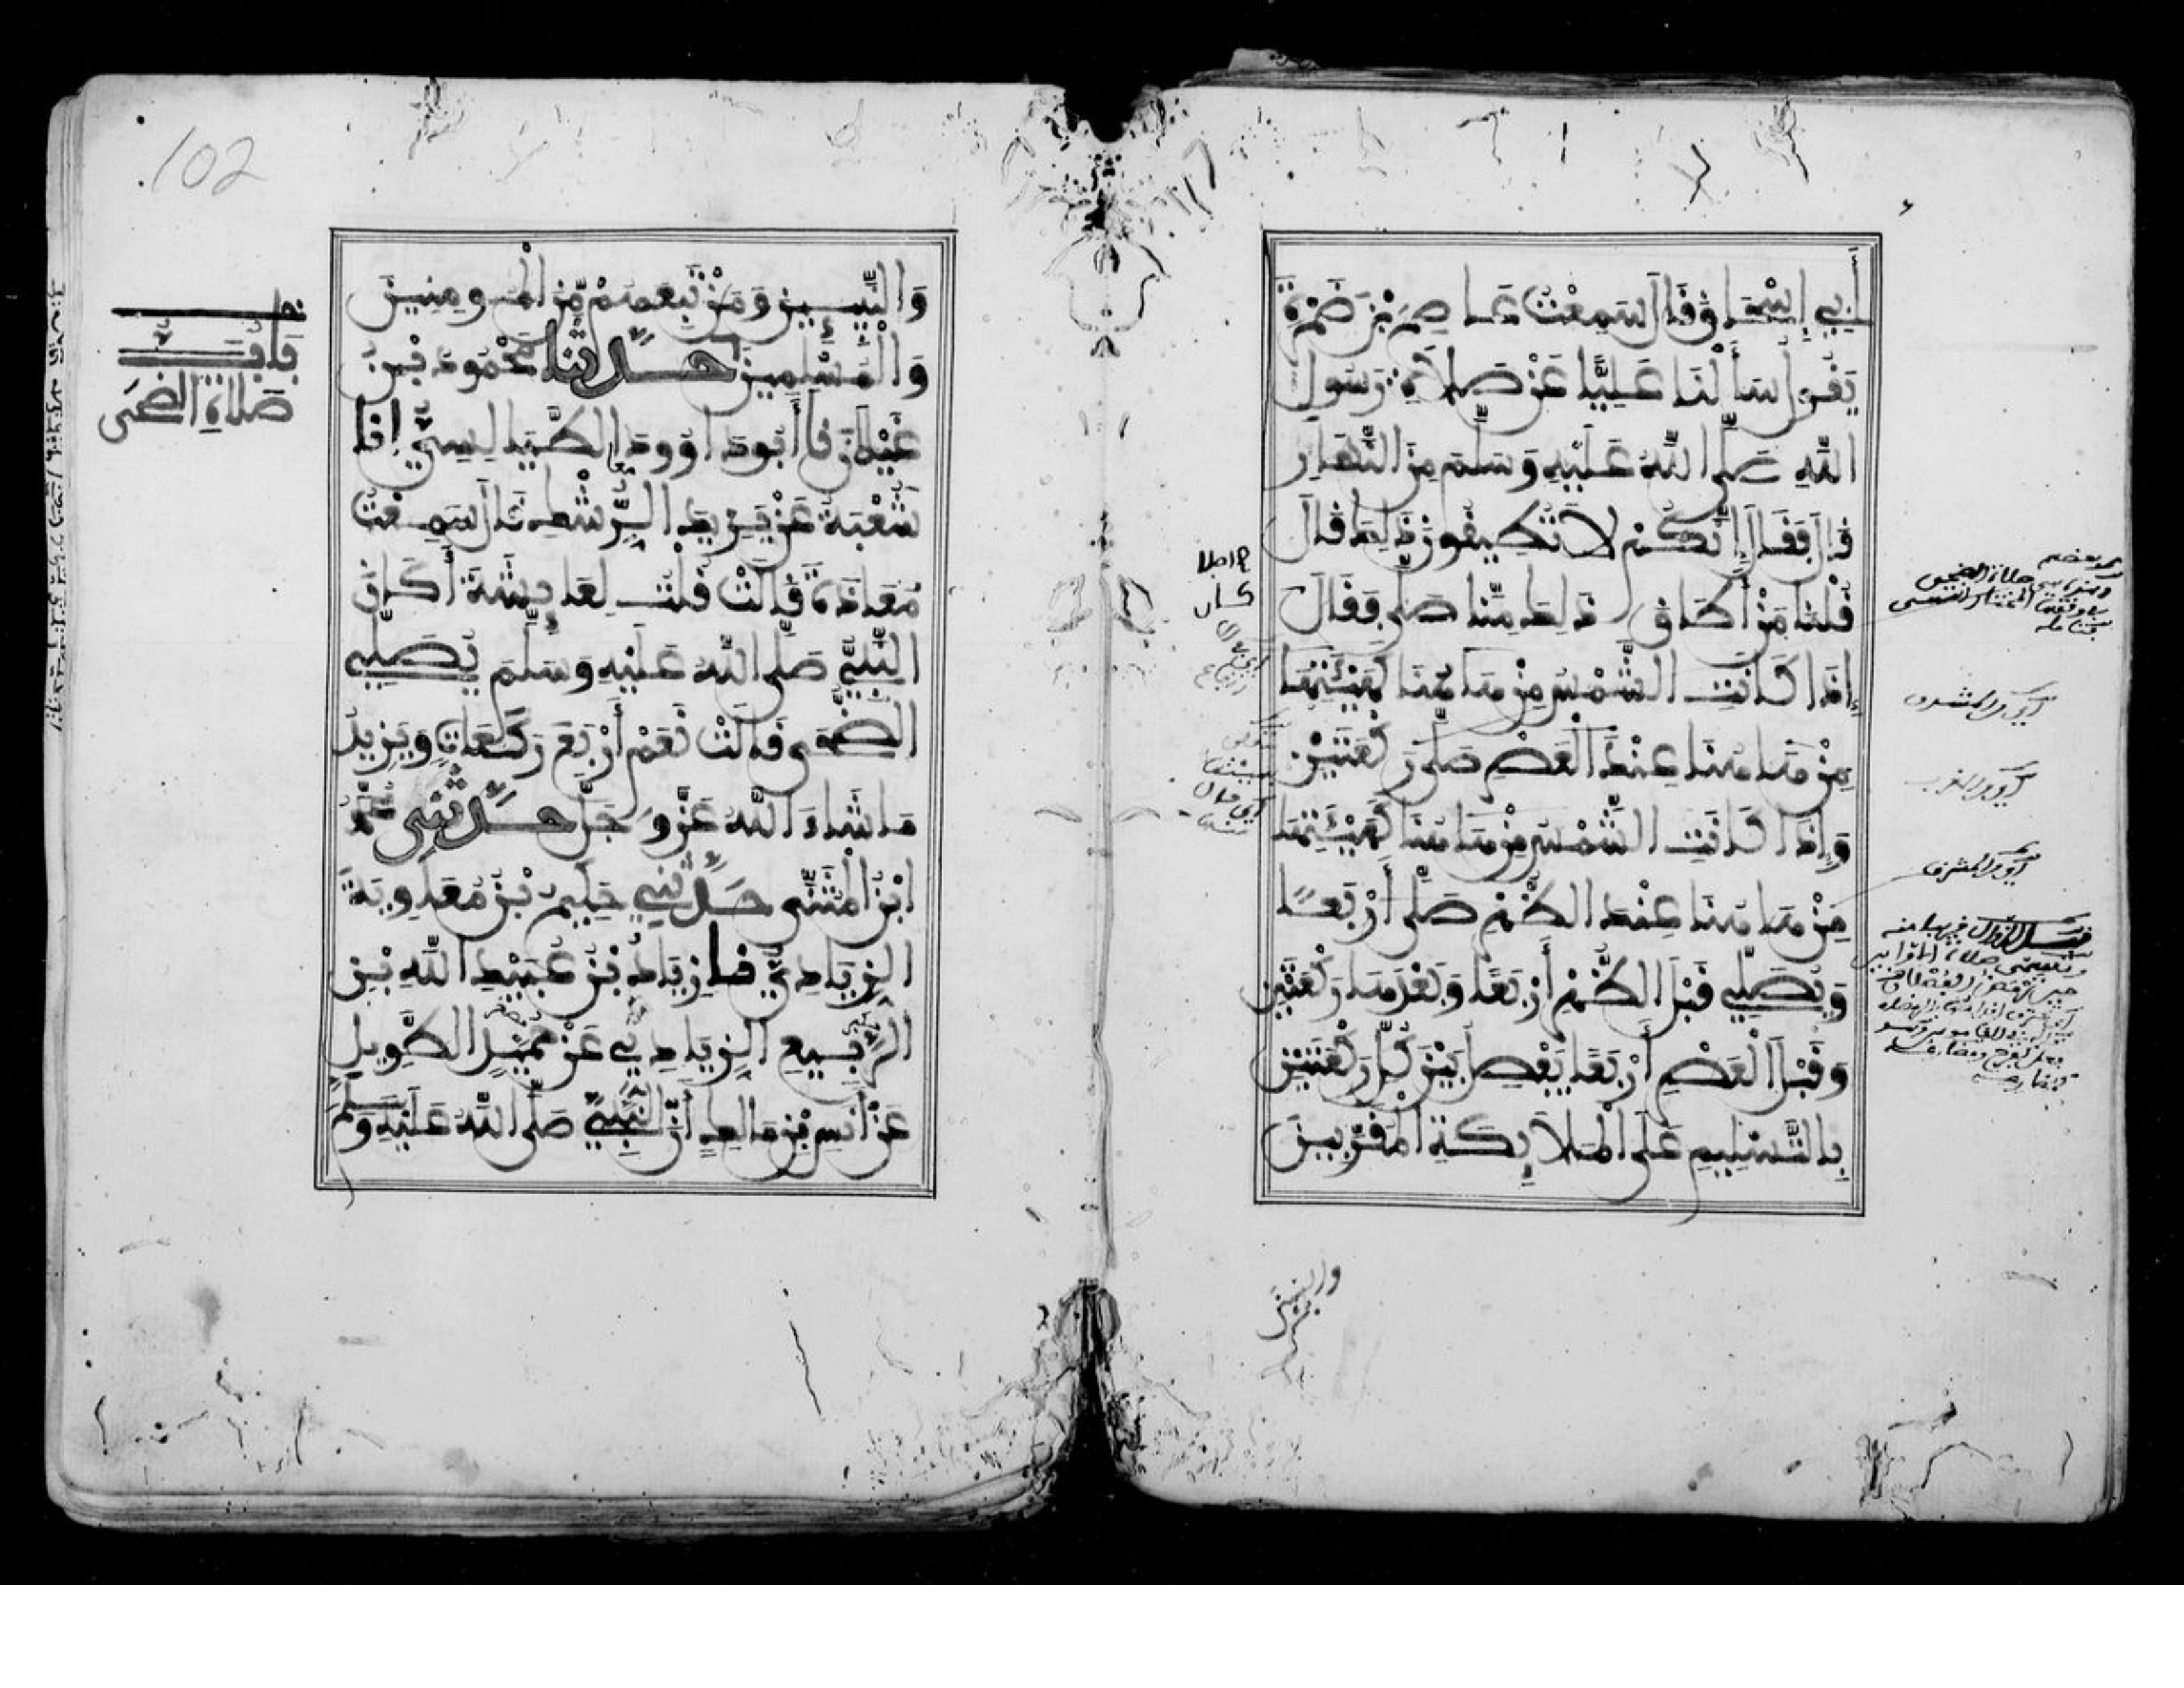 أَبِي إِسْحَاقَ قَالَ سَمِعْتُ عَاصِمَ بْنَ ضَمْرَةَ
يَقُولُ سَأَلْنَا عَلِيًّا عَنْ صَلَاةِ رَسُولِ
اللَّهِ صَلَّى اللَّهُ عَلَيْهِ وَسَلَّمَ مِنَ النَّهَارِ
قَالَ فَقَالَ إِنَّكُمْ لَا تُطِيقُونَ ذَلِكَ قَالَ
قُلْنَا مَنْ أَطَاقَ ذَلِكَ مِنَّا صَلَّى فَقَالَ
إِذَا كَانَتِ الشَّمْسُ مِنْ هَاهُنَا كَهَيْئَتِهَا
مِنْ هَاهُنَا عِنْدَ الْعَصْرِ صَلَّى رَكْعَتَيْنِ
وَإِذَا كَانَتِ الشَّمْسُ مِنْ هَاهُنَا كَهَيْئَتِهَا
مِنْ هَاهُنَا عِنْدَ الظُّهْرِ صَلَّى أَرْبَعًا
وَيُصَلِّي قَبْلَ الظُّهْرِ أَرْبَعًا وَبَعْدَهَا رَكْعَتَيْنِ
وَقَبْلَ الْعَصْرِ أَرْبَعًا يَفْصِلُ بَيْنَ كُلِّ رَكْعَتَيْنِ
بِالتَّسْلِيمِ عَلَى الْمَلَائِكَةِ الْمُقَرَّبِينَ
أي من المشرق
أي من المغرب
أي من المشرق
والنبيين
102
وَالنَّبِيِّينَ وَمَنْ تَبِعَهُمْ مِّنَ الْمُومِنِينَ
وَالْمُسْلِمِينَ حَدَّثَنَا مَحْمُودُ بْنُ
غَيْلَانَ نَا أَبُو دَاوُودَ الطَّيَالِسِيُّ أنا
شُعْبَةُ عَنْ يَزِيدَ الرِّشْكِ قَالَ سَمِعْتُ
مُعَاذَةَ قَالَتْ قُلْتُ لِعَائِشَةَ أَكَانَ
النَّبِيُّ صَلَّى اللَّهُ عَلَيْهِ وَسَلَّمَ يُصَلِّي
الضُّحَى قَالَتْ نَعَمْ أَرْبَعَ رَكَعَاتٍ وَيَزِيدُ
مَا شَاءَ اللَّهُ عَزَّ وَجَلَّ حَدَّثَنِي مُحَمَّدُ
ابْنُ الْمُثَنَّى حَدَّثَنِي حَكِيمُ بْنُ مُعَاوِيَةَ
الزِّيَادِيُّ نا زِيَادُ بْنُ عُبَيْدِ اللَّهِ بْنِ
الرَّبِيعِ الزِّيَادِيُّ عَنْ حُمَيْدٍ الطَّوِيلِ
عَنْ أَنَسِ بْنِ مَالِكٍ أَنَّ النَّبِيَّ صَلَّى اللَّهُ عَلَيْهِ وَسَلَّمَ
بَابُ
صَلَاةِ الضُّحَى